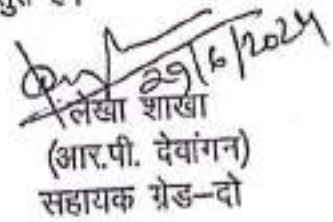 29/6/2024
लेखा शाखा
(आर.पी. देवांगन)
सहायक ग्रेड–दो